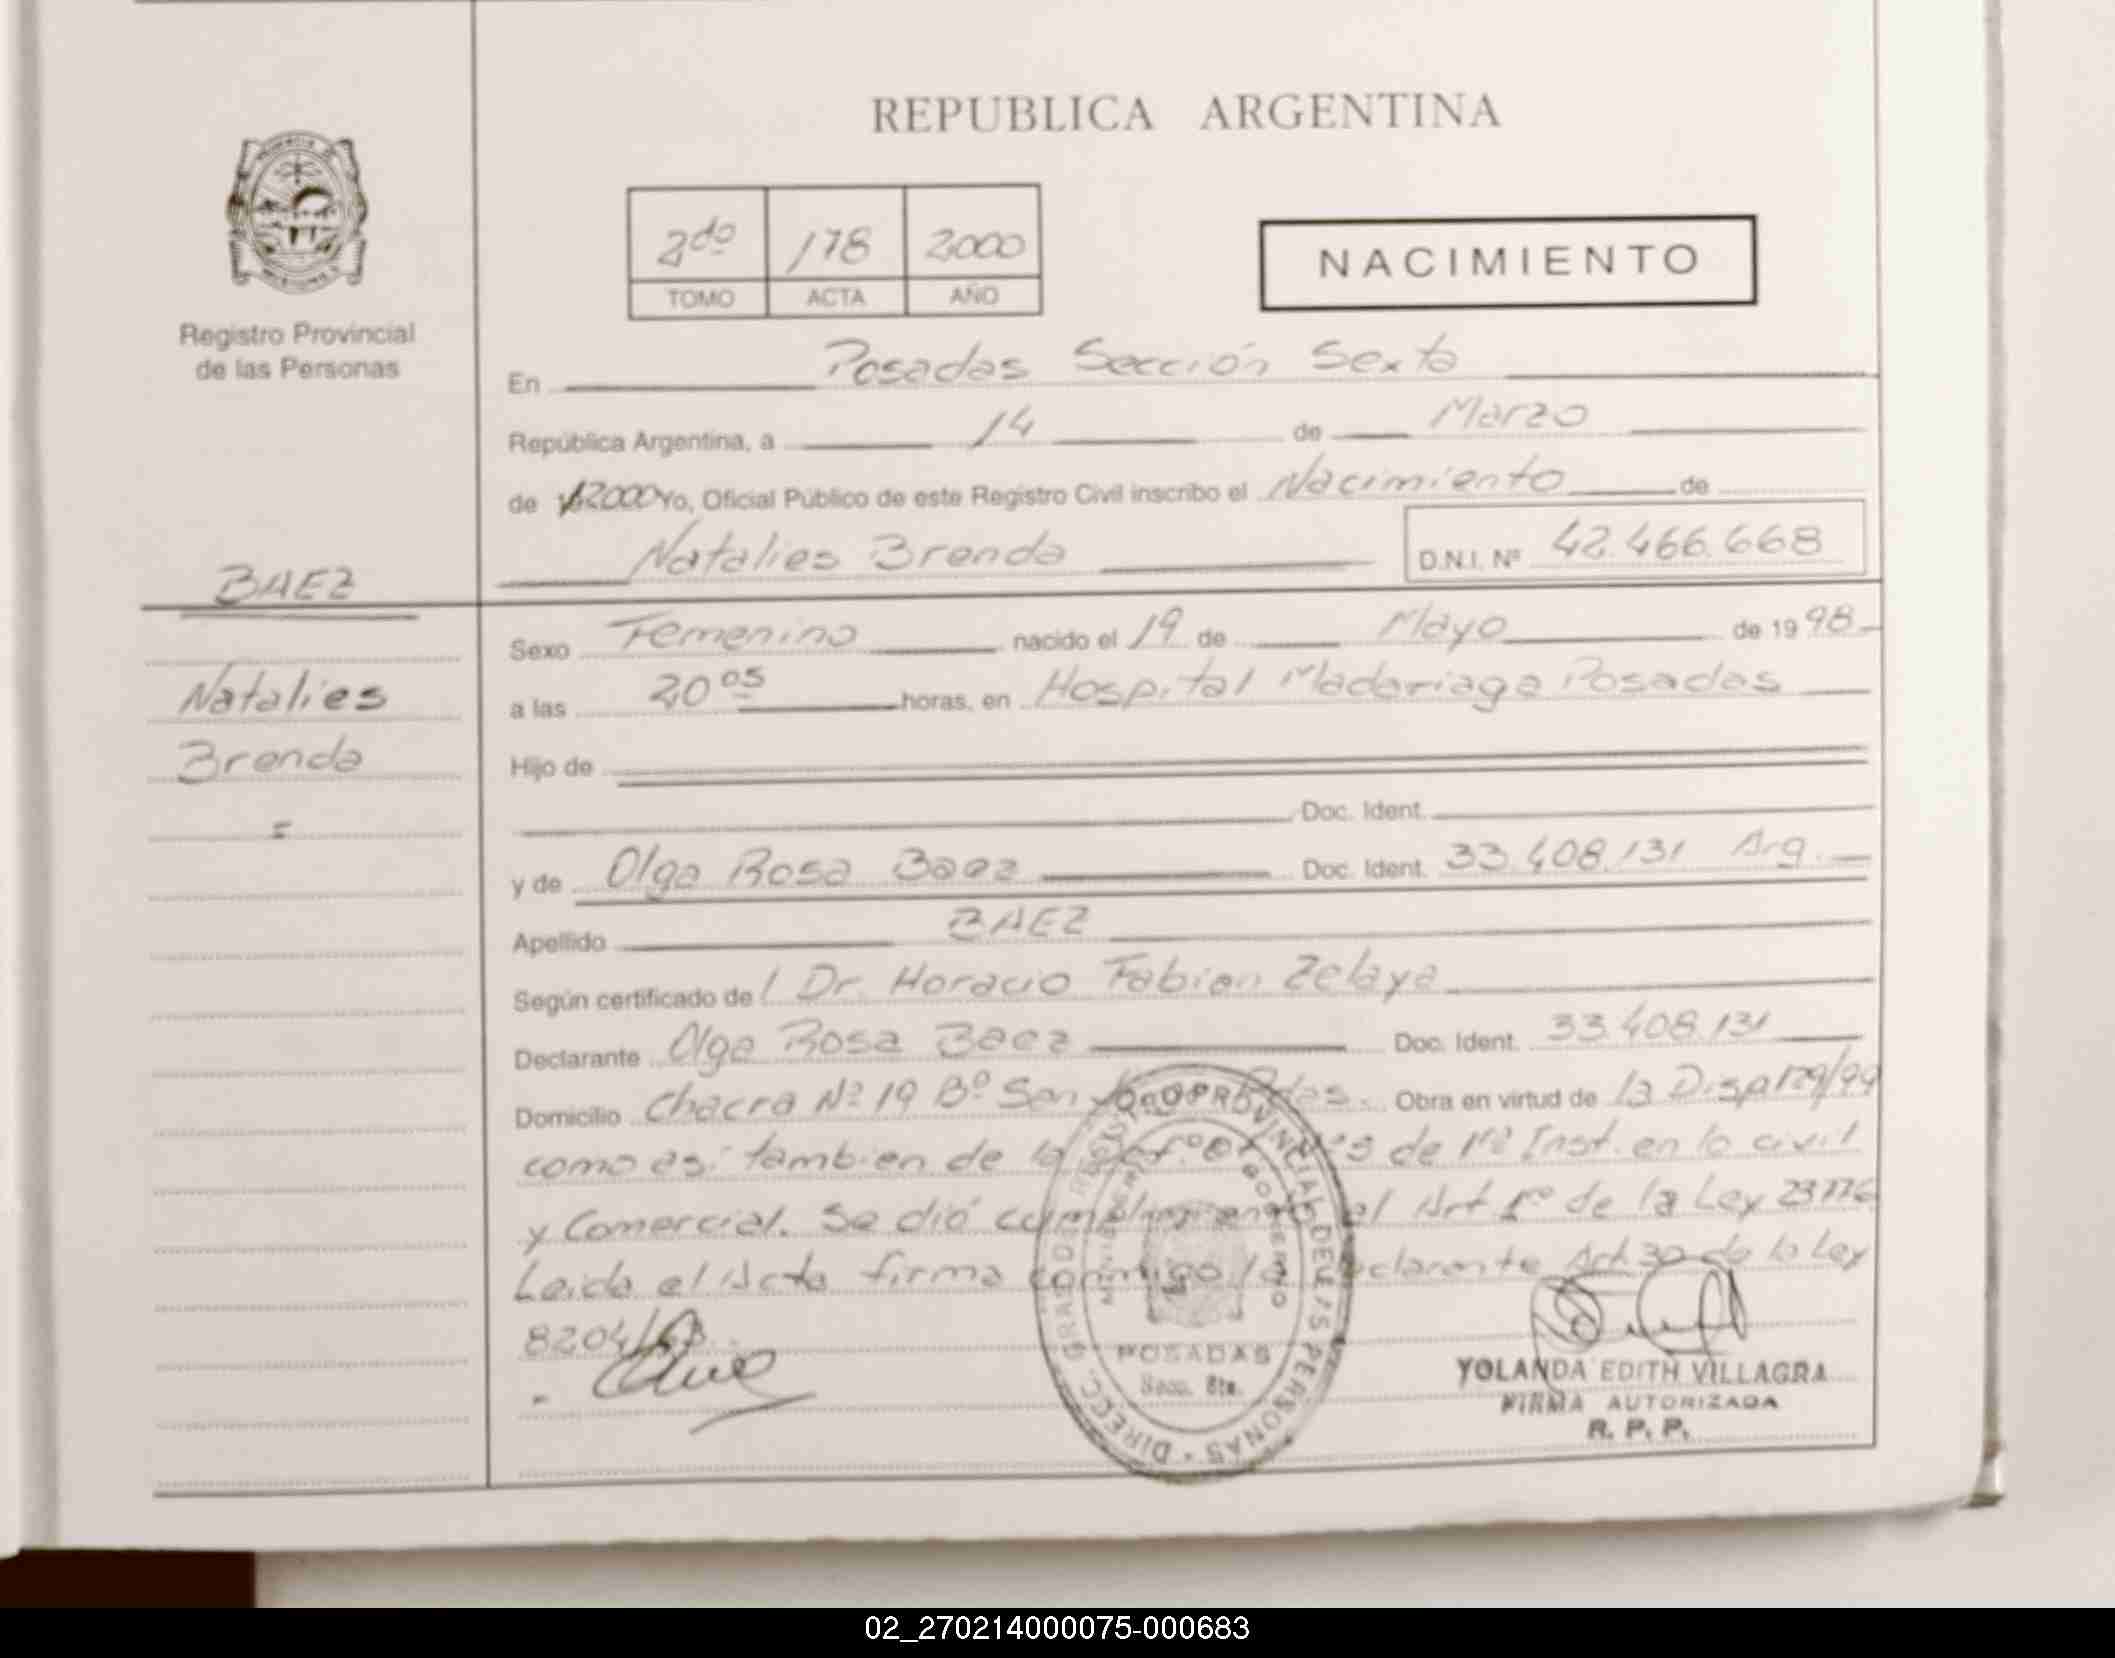 REPUBLICA ARGENTINA
Registro Provincial
de las Personas
2do 178 2000
TOMO ACTA AÑO
NACIMIENTO
En Posadas Sección Sexta
República Argentina, a 14 de Marzo
de 2000 Yo, Oficial Público de este Registro Civil inscribo el Nacimiento de
Natalies Brenda D.N.I. Nº 42.466.668
BAEZ
Natalies
Brenda
=
Sexo Femenino nacido el 19 de Mayo de 1998
a las 20 05 horas, en Hospital Madariaga Posadas
Hijo de
Doc. Ident.
y de Olga Rosa Baez Doc. Ident. 33.408.131 Arg.
Apellido BAEZ
Según certificado del Dr. Horacio Fabian Zelaya
Declarante Olga Rosa Baez Doc. Ident. 33.408.131
Domicilio Chacra Nº 19 Bº San Pdas. Obra en virtud de la Disp 129/99
como asi tambien de la de 1ra Inst. en lo civil
y Comercial. Se dió cumplimiento al Art 1ro de la Ley 23776
Leida el Acta firma conmigo la declarante Art 30 de la Ley
8204/63.
DIRECC. GRAL. DEL REGISTRO PROVINCIAL DE LAS PERSONAS
MINISTERIO GOBIERNO
POSADAS
Secc. 6ta.
YOLANDA EDITH VILLAGRA
FIRMA AUTORIZADA
R. P. P.
02_270214000075-000683